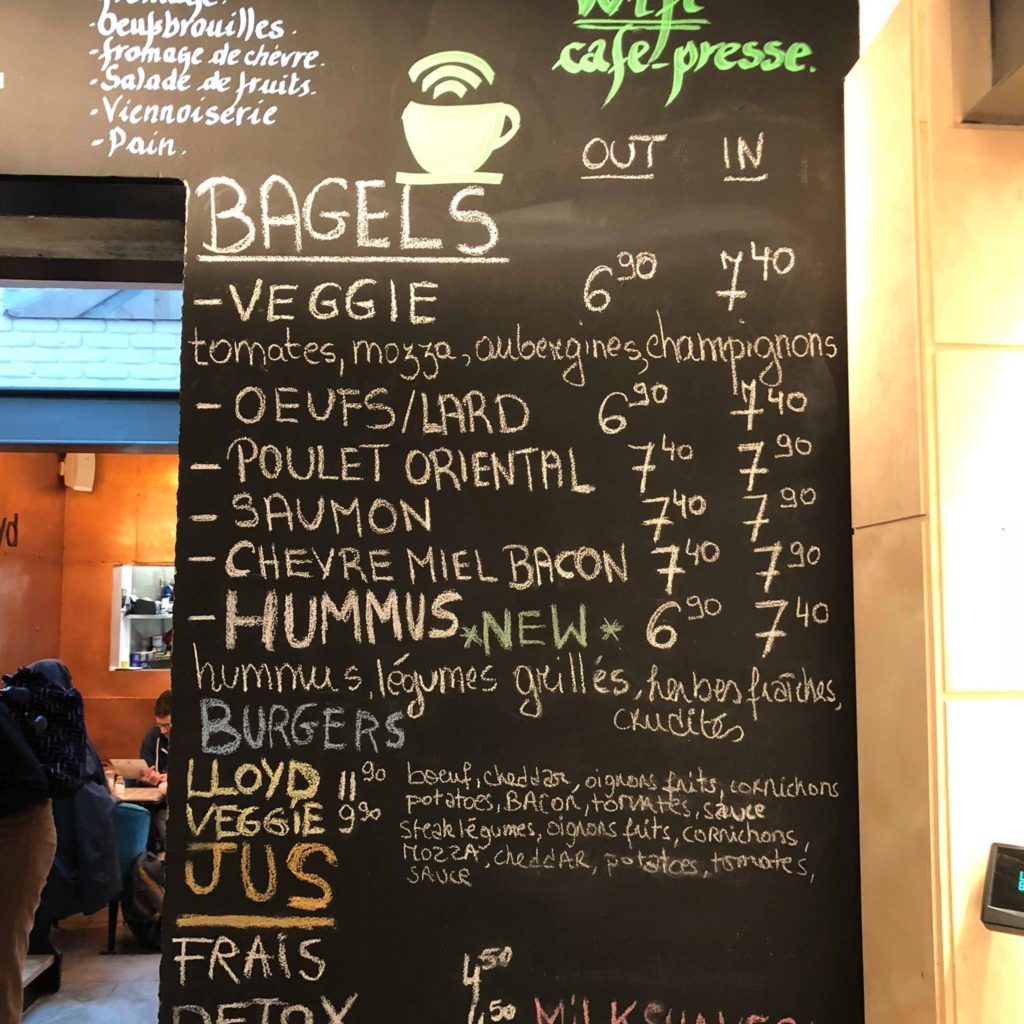 fromage.
·Oeufsbrouilles.
·fromage de chèvre.
·Salade de fruits.
·Viennoiserie
·Pain.
Wifi
cafe-presse.
OUT IN
BAGELS
-VEGGIE 6⁹⁰ 7⁴⁰
tomates, mozza, aubergines, champignons
- OEUFS/LARD 6⁹⁰ 7⁴⁰
- POULET ORIENTAL 7⁴⁰ 7⁹⁰
- SAUMON 7⁴⁰ 7⁹⁰
- CHEVRE MIEL BACON 7⁴⁰ 7⁹⁰
- HUMMUS *NEW* 6⁹⁰ 7⁴⁰
hummus, légumes grillés, herbes fraîches,
crudités
BURGERS
LLOYD 11⁹⁰ boeuf, cheddar, oignons frits, cornichons
potatoes, BACON, tomates, sauce
VEGGIE 9⁹⁰ Steak légumes, oignons frits, cornichons,
MOZZA, cheddAR, potatoes, tomates,
SAUCE
JUS
FRAIS 4⁵⁰
DETOX ⁵⁰ MILKSHAKES
yd